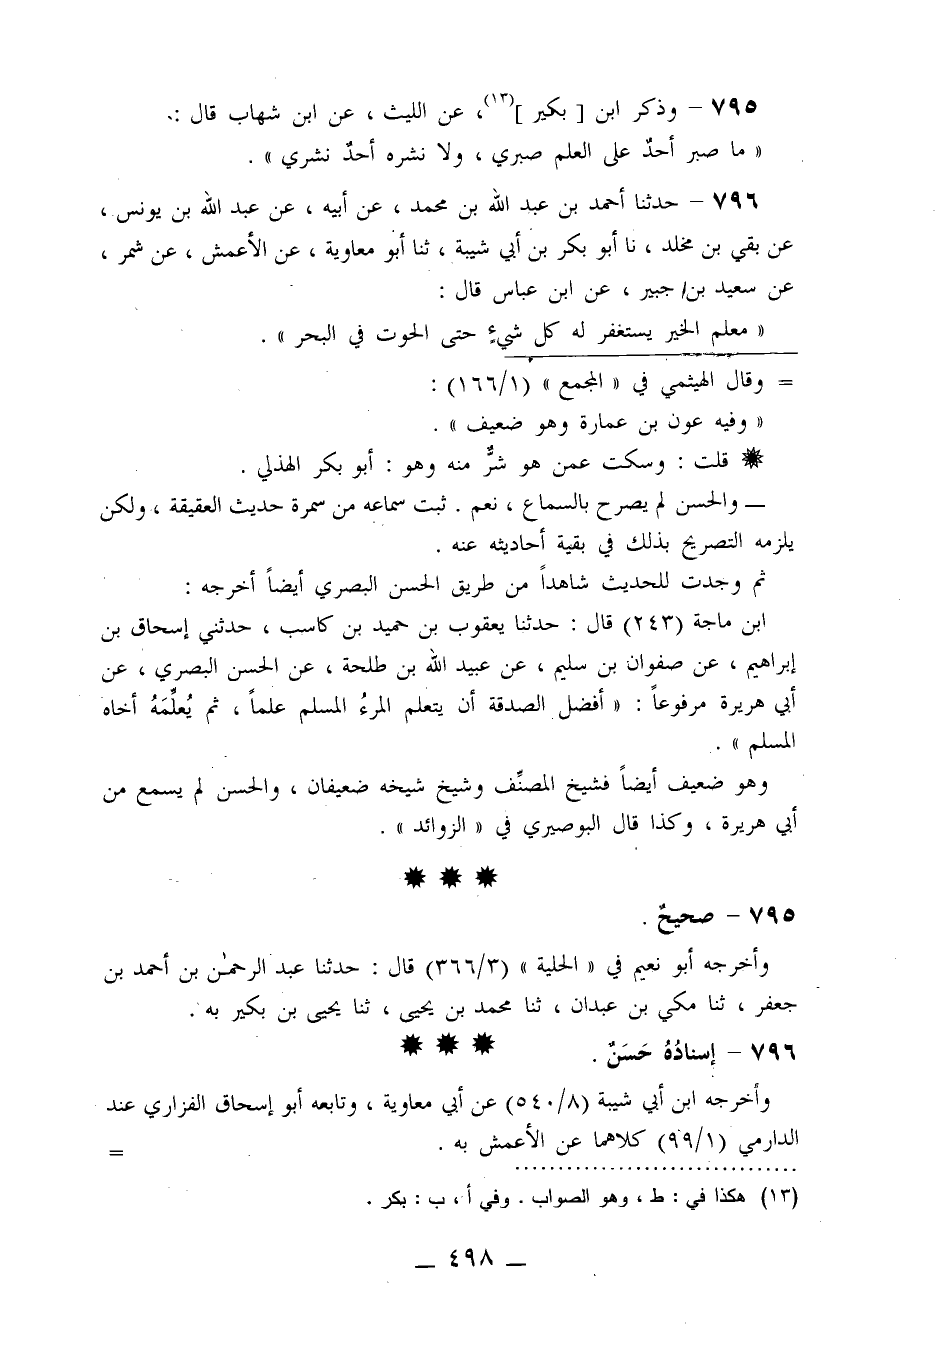 ٧٩٥ – وذكر ابن [ بكير ](١٣)، عن الليث ، عن ابن شهاب قال :
« ما صبر أحدٌ على العلم صبري ، ولا نشره أحدٌ نشري » .
٧٩٦ – حدثنا أحمد بن عبد الله بن محمد ، عن أبيه ، عن عبد الله بن يونس ،
عن بقي بن مخلد ، نا أبو بكر بن أبي شيبة ، ثنا أبو معاوية ، عن الأعمش ، عن شمر ،
عن سعيد بن/ جبير ، عن ابن عباس قال :
« معلم الخير يستغفر له كل شيءٍ حتى الحوت في البحر » .
= وقال الهيثمي في « المجمع » (١٦٦/١) :
« وفيه عون بن عمارة وهو ضعيف » .
✸ قلت : وسكت عمن هو شرٌّ منه وهو : أبو بكر الهذلي .
— والحسن لم يصرح بالسماع ، نعم . ثبت سماعه من سمرة حديث العقيقة ، ولكن
يلزمه التصريح بذلك في بقية أحاديثه عنه .
ثم وجدت للحديث شاهداً من طريق الحسن البصري أيضاً أخرجه :
ابن ماجة (٢٤٣) قال : حدثنا يعقوب بن حميد بن كاسب ، حدثني إسحاق بن
إبراهيم ، عن صفوان بن سليم ، عن عبيد الله بن طلحة ، عن الحسن البصري ، عن
أبي هريرة مرفوعاً : « أفضل الصدقة أن يتعلم المرءُ المسلم علماً ، ثم يُعلِّمَهُ أخاه
المسلم » .
وهو ضعيف أيضاً فشيخ المصنِّف وشيخ شيخه ضعيفان ، والحسن لم يسمع من
أبي هريرة ، وكذا قال البوصيري في « الزوائد » .
✸ ✸ ✸
٧٩٥ – صحيحٌ .
وأخرجه أبو نعيم في « الحلية » (٣٦٦/٣) قال : حدثنا عبد الرحمٰن بن أحمد بن
جعفر ، ثنا مكي بن عبدان ، ثنا محمد بن يحيى ، ثنا يحيى بن بكير به .
✸ ✸ ✸
٧٩٦ – إسنادُهُ حَسَنٌ .
وأخرجه ابن أبي شيبة (٥٤٠/٨) عن أبي معاوية ، وتابعه أبو إسحاق الفزاري عند
الدارمي (٩٩/١) كلاهما عن الأعمش به . =
(١٣) هكذا في : ط ، وهو الصواب . وفي أ ، ب : بكر .
— ٤٩٨ —